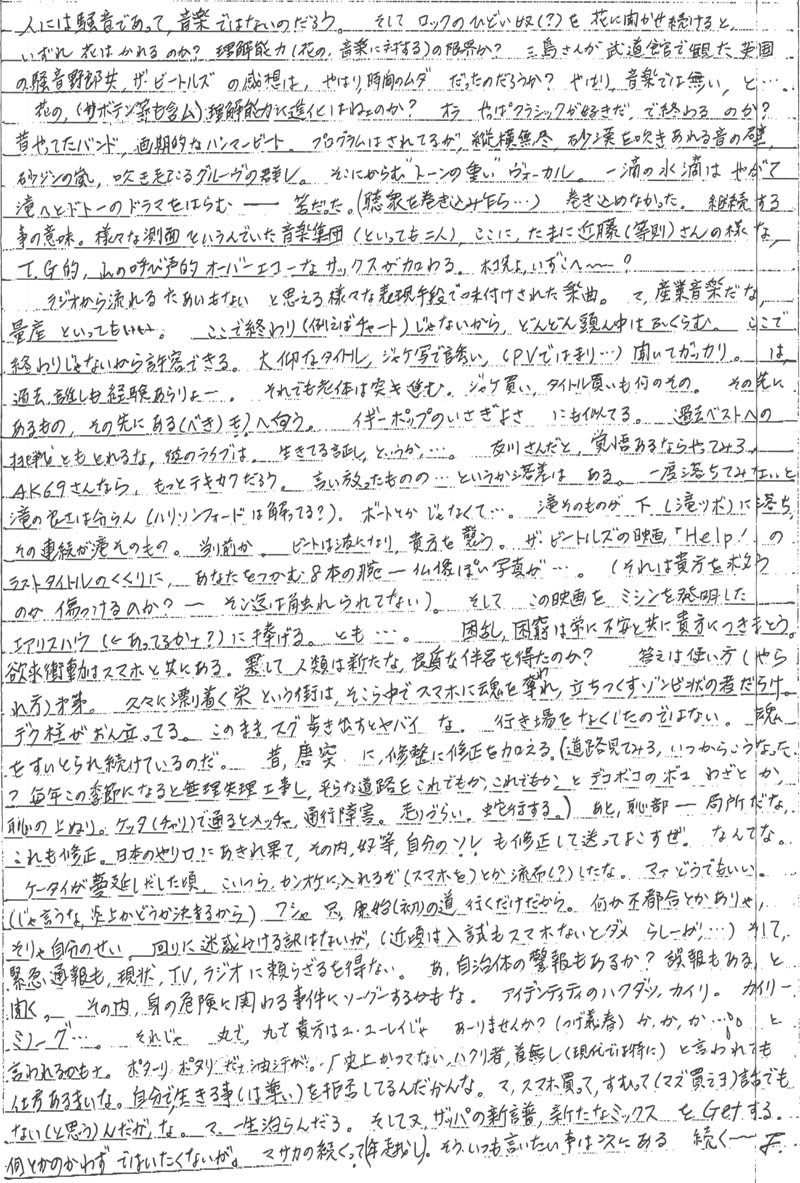 人には騒音であって、音楽ではないのだろう。 そして ロックのひどい奴(?)を 花に聞かせ続けると、
いずれ 花はかれるのか? 理解能力(花の、音楽に対する)の限界か? 三島さんが 武道館で観た 英国
の騒音野郎共、ザ・ビートルズ の感想は、やはり、時間のムダ だったのだろうか? やはり、音楽では無い、と…。
花の、(サボテン等も含ム)理解能力に進化はねェのか? オラ やっぱクラシックが好きだ、で終わる のか?
昔やってたバンド、画期的なハンマービート。 プログラムはされてるが、縦横無尽、砂漠を吹きあれる音の壁、
砂ジンの嵐、吹き毛こるグルーヴの群れ。 そこにからむ"トーンの重い" ヴォーカル。 一滴の水滴は やがて
滝へとドトーのドラマをはらむ ── 筈だった。(聴衆を巻き込み乍ら…) 巻き込めなかった。 継続する
事の意味。様々な測面 というんでいた音楽集団(といっても二人)、ここに、たまに近藤(等則)さんの様な、
T.G的、山の呼び声的 オーバーエコーなサックスが加わる。 いずこへ〜〜?
ラジオから流れる たあいもない と思える様々な表現手段で味付けされた楽曲。 マ、産業音楽だな、
量産 といってもいい。 ここで終わり(例えばチャート)じゃないから、どんどん頭ん中は ふくらむ。 ここで
終わりじゃないから許容できる。 大仰なタイトル、ジャケ写で誘い、(PVではまり…) 聞いてガッカリ。 は、
過去、誰しも経験ありょー。 それでも老体は突き進む。 ジャケ買い、タイトル買いも何のその。 その先に
あるもの、その先にある(べき)モノへ向う。 イギーポップのいさぎよさ にも似てる。 過去ベストへの
挑戦ともとれるな、彼のライブは。 生きてる証し、というか…。 友川さんだと、覚悟あるならやってみろ、
AK69さんなら、もっとテキカクだろう。 言い放ったものの…というか落差は ある。 一度落ちてみないと
滝の良さは分らん(ハリソンフォードは解ってる?)。 ボートとか じゃなくて…。 滝そのものが 下(滝ツボ)に落ち、
その連続が滝そのもの。 当り前か。 ビートは波になり、貴方を襲う。 ザ・ビートルズの映画「Help!」の
ラストタイトルのくくりに、 あなたをつかむ8本の腕 ─ 仏像ぽい写真が…。 (それは貴方を求める
のか 傷つけるのか? ─ そこ迄は触れられてない)。 そして この映画を ミシンを発明した
エアリスハウ(←あってるかナ?)に捧げる。 とも…。 困乱、困窮は常に不安と共に貴方につきまとう。
欲求衝動はスマホと共にある。 果して 人類は新たな、良質な伴侶を得たのか? 答えは使い方(やら
れ方)次第。 久々に漂り着く栄 という街は、そこら中でスマホに魂を奪われ、立ちつくす、ゾンビ状の者だらけ。
デク柱がおん立ってる。 このまま、スグ歩き出すとヤバイ な。 行き場をなくしたのではない。 魂
をすいとられ続けているのだ。 昔、唐突 に、修整に修正を加える。(道路見てみろ、いつからこうなった
? 毎年この季節になると無理矢理工事し、平らな道路をこれでもか、これでもか、とデコボコのボコ わざとか、
恥の上ぬり。 ケッタ(チャリ)で通るとメッチャ、通行障害。 走りづらい、蛇行する。) あと、恥部 ─ 局所だな、
これも修正。 日本のやり口にあきれ果て、その内、好等、自分のソレ も修正して送ってよこすぜ。 なんてな。
ケータイが蔓延しだした頃、こいつら、カンオケに入れるぞ(スマホを)とか流布(?)したな。 マァ どうでもいい。
(じゃ言うな、炎上かどうか決まるから) ワシャ 只、原始(初)の道 行くだけだから。 何か不都合とかありゃ、
そりゃ自分のせい。 回りに迷惑かける訳はないが、(近頃は入試もスマホないとダメ らしーが…) そして、
緊急通報も、現状、TV、ラジオに頼らざるを得ない。 あ、自治体の警報もあるか? 誤報もある と
聞く。 その内、身の危険に関わる事件にソーグーするかもな。 アイデンティティのハクダツ、カイリ。 カイリー
ミノーグ…。 それじゃ 丸で、丸で貴方はユーエーレイじゃ ありませんか?(つげ義春) か、か、か…。。 と
言われるかもナ。 ポターリ ポタリ だァ油汗が。 「史上かつてない、ハクリ者、首無し(現代では特に) と言われても
仕方あるまいな。 自分で生きる事(は難い)を拒否してるんだかんな。 マ、スマホ買って、すむって(マズ買えヨ)話でも
ない(と思う)んだが、な。 マ、一生治らんだろ。 そして又、ザッパの新譜、新たなミックス をGetする。
何とかのかわず ではいたくないが。 マサカの続くって(年越し)。そう、いつも言いたい事は次にある 続く〜